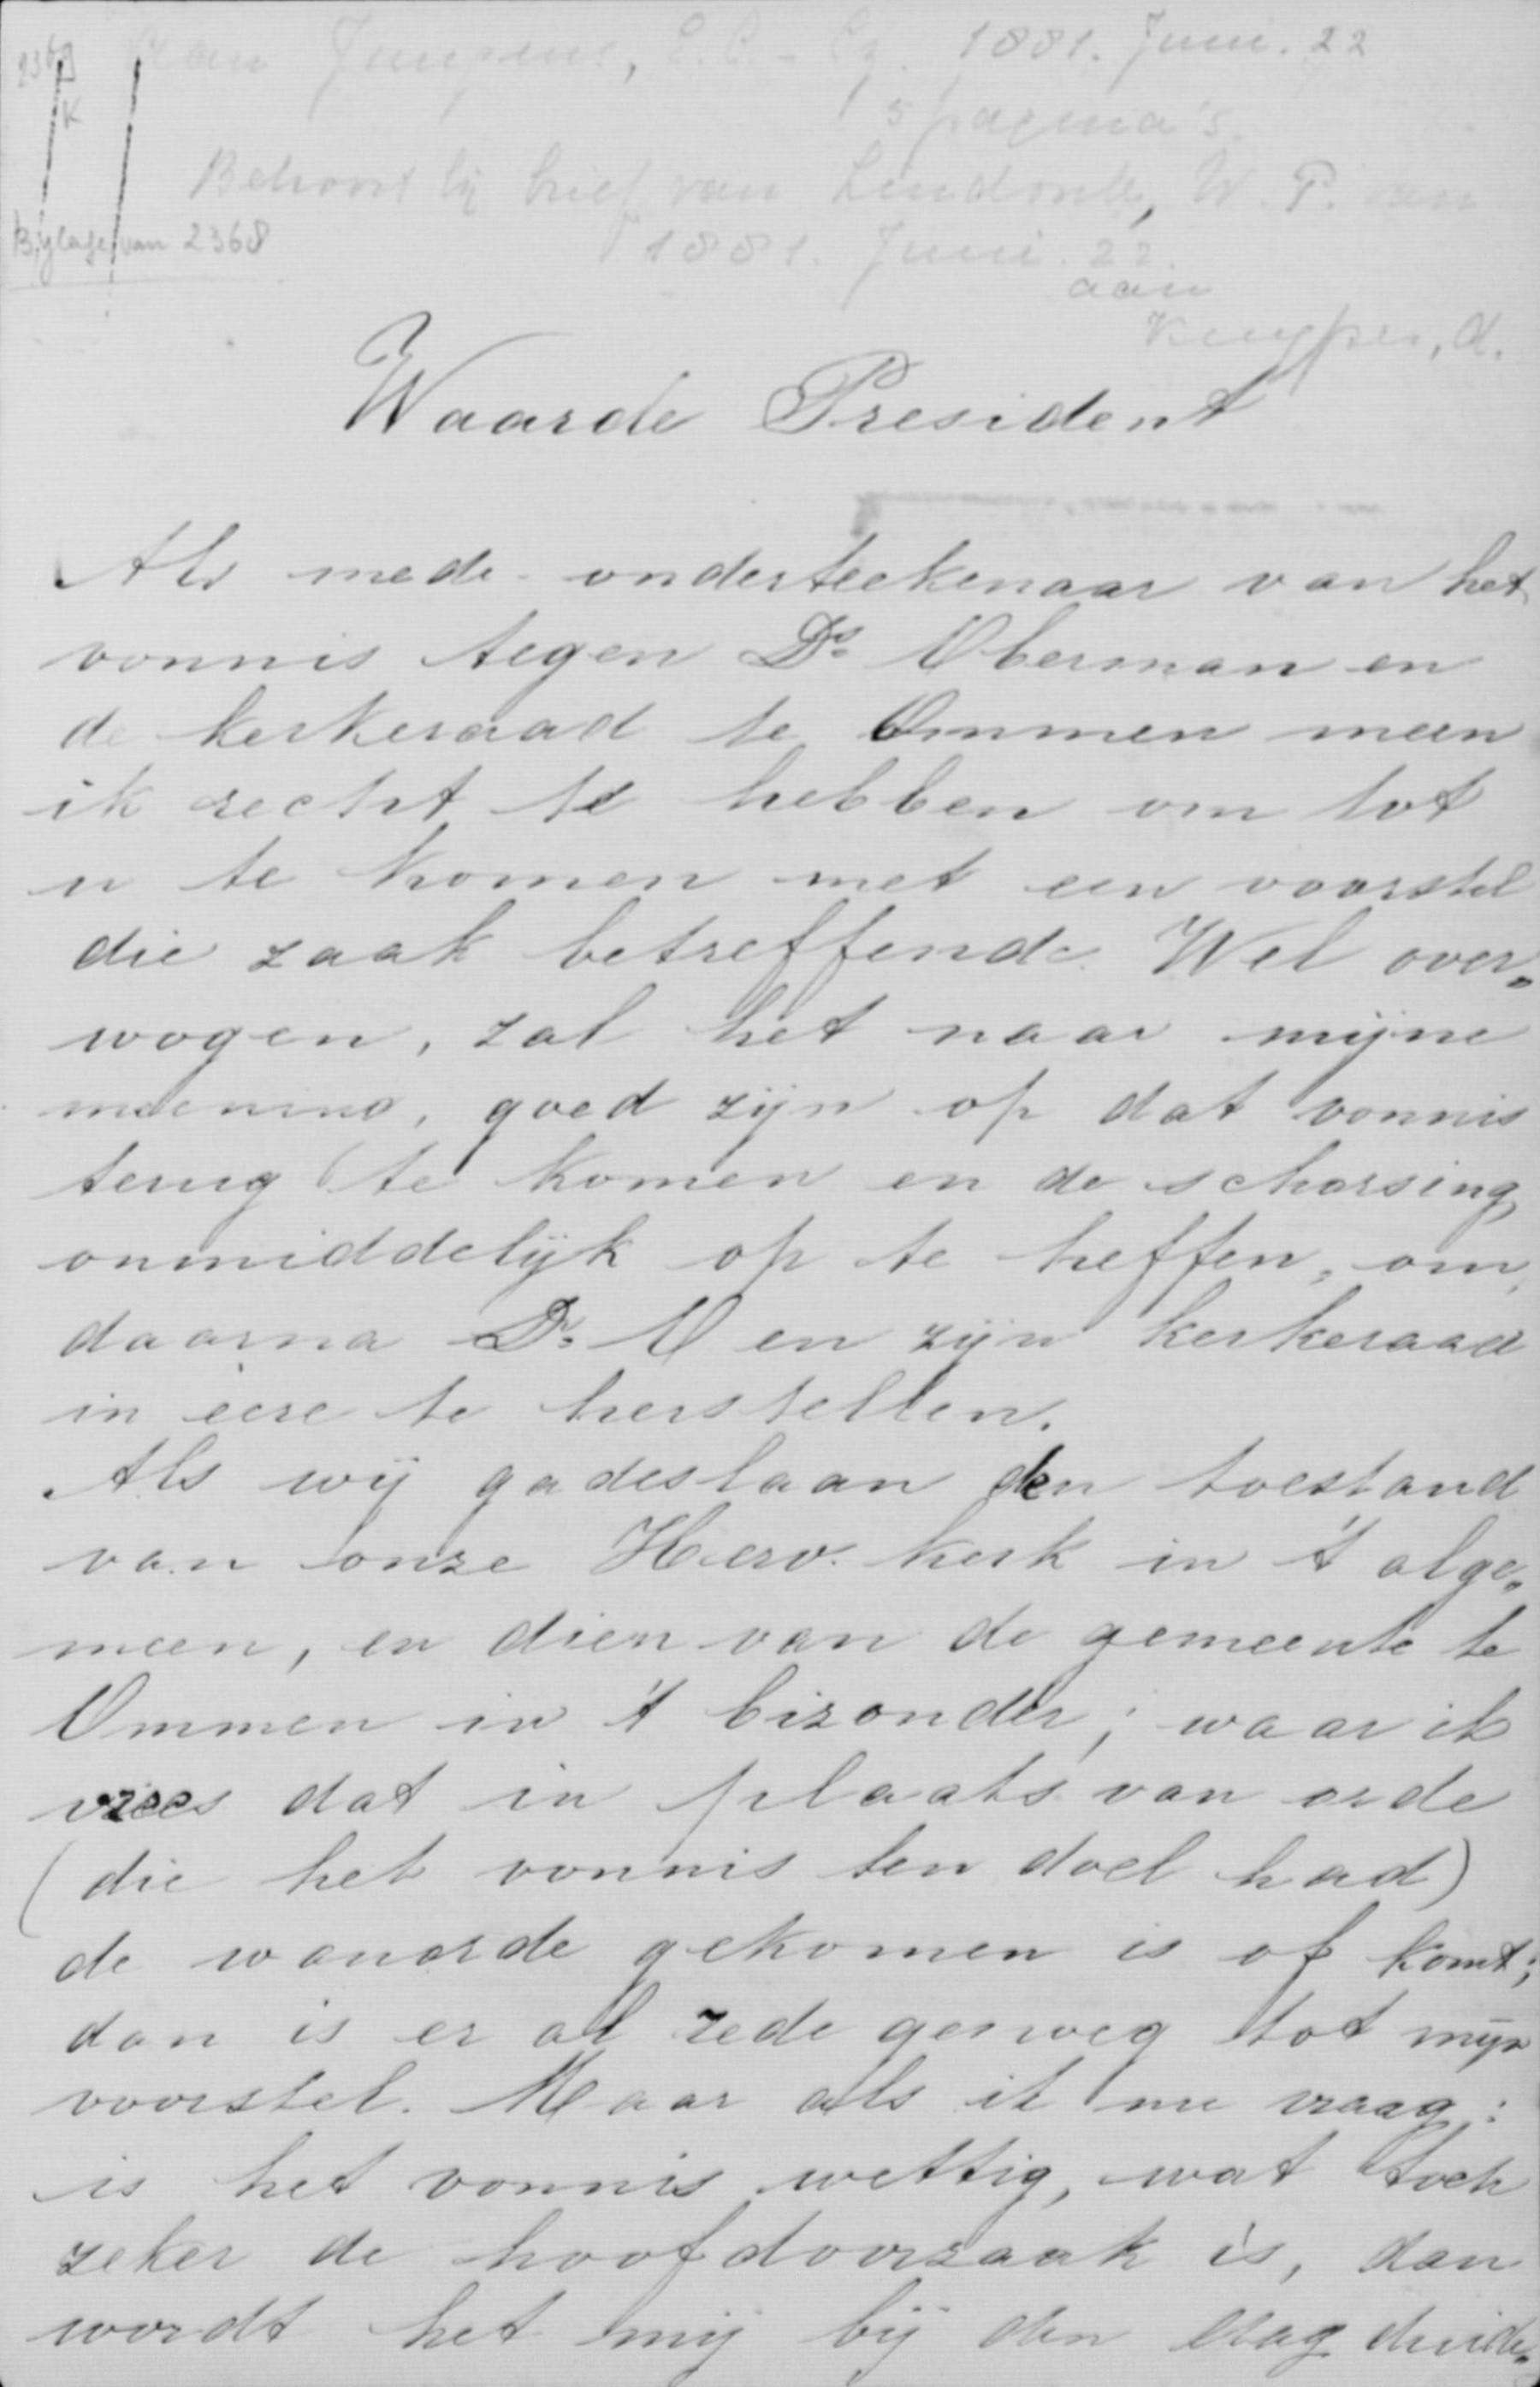 1881. Juni. 22
5 pagina's.
Behoort bij brief van W. P. van
Bijlage van 2368
1881. Juni. 22.
aan
Kuyper, A.
Waarde President
Als mede-onderteekenaar van het
vonnis tegen Ds. Oberman en
de kerkeraad te Ommen meen
ik recht te hebben om tot
u te komen met een voorstel
die zaak betreffende. Wel over„
wogen, zal het naar mijne
meening, goed zijn op dat vonnis
terug te komen en de schorsing
onmiddelijk op te heffen, om,
daarna Ds. O en zijn kerkeraad
in eere te herstellen.
Als wij gadeslaan den toestand
van onze Herv. kerk in 't alge„
meen, en dien van de gemeente te
Ommen in 't bizonder; waar ik
vrees dat in plaats van orde
(die het vonnis ten doel had)
de wanorde gekomen is of komt;
dan is er al rede genoeg tot mijn
voorstel. Maar als ik me vraag:
is het vonnis wettig, wat toch
zeker de hoofdoorzaak is, dan
wordt het mij bij den dag duide„